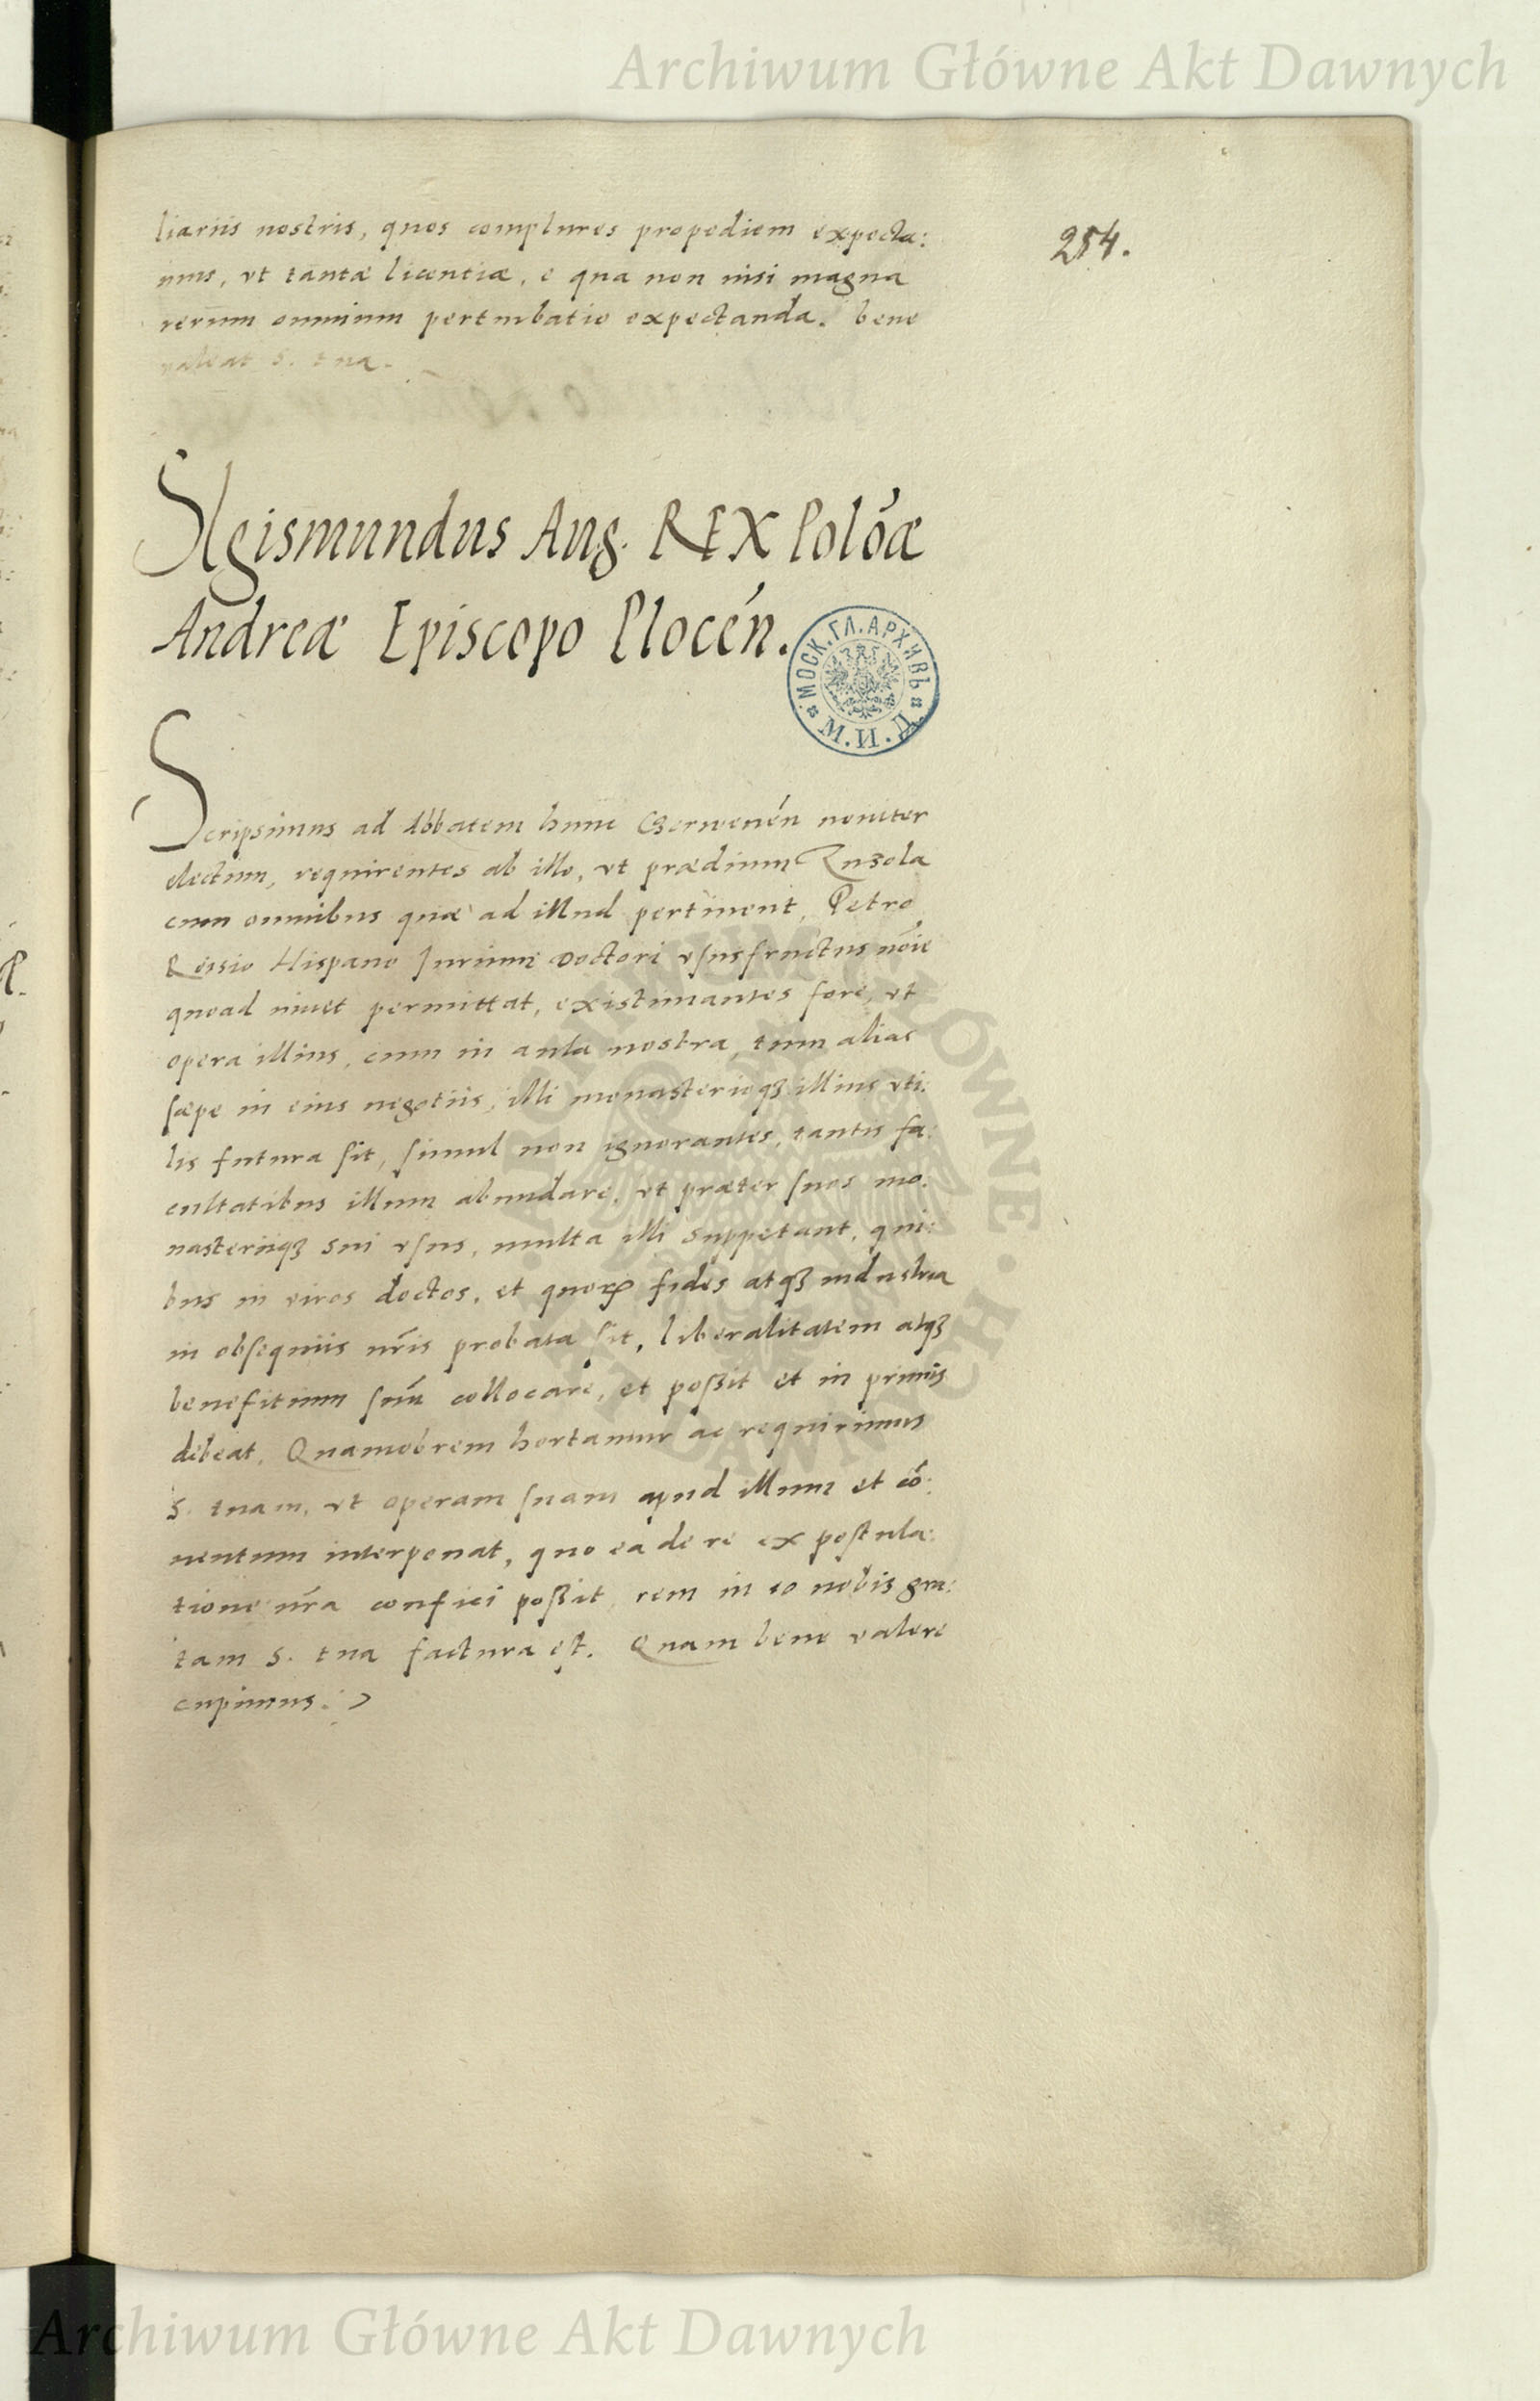 Archiwum Główne Akt Dawnych
254.
liariis nostris, quos complures propediem expecta:
mus, vt tantæ licentiæ, e qua non nisi magna
rerum omnium perturbatio expectanda. bene
valeat S. tua.
SIgismundus Aug. REX Polóæ
Andreæ Episcopo Plocén.
МОСК. ГЛ. АРХИВЪ
М. И. Д.
Scripsimus ad Abbatem hunc Czerwenén noviter
electum, requirentes ab illo, vt prædium
cum omnibus quæ ad illud pertinent, Petro
Roisio Hispano Jurium Doctori vsusfructus nóie
quoad viuet permittat, existimantes fore, vt
opera illius, cum in aula nostra, tum alias
sæpe in eius negotiis, illi monasterioqȝ illius vti:
lis futura sit, simul non ignorantes, tantis fa:
cultatibus illum abundare, vt præter suos mo:
nasteriiqȝ sui vsus, multa illi suppetant, qui:
bus in viros doctos, et quorꝝ fides atqȝ industria
in obsequiis nr̃is probata sit, liberalitatem atqȝ
benefitium suũ collocare, et poßit et in primis
debeat. Quamobrem hortamur ac requirimus
S. tuam, vt operam suam apud illum et cõ:
uentum interponat, quo ea de re ex postula:
tione nr̃a confici poßit, rem in eo nobis gra:
tam S. tua factura est. Quam bene valere
cupimus.
ARCHIWUM GŁÓWNE AKT DAWNYCH
Archiwum Główne Akt Dawnych